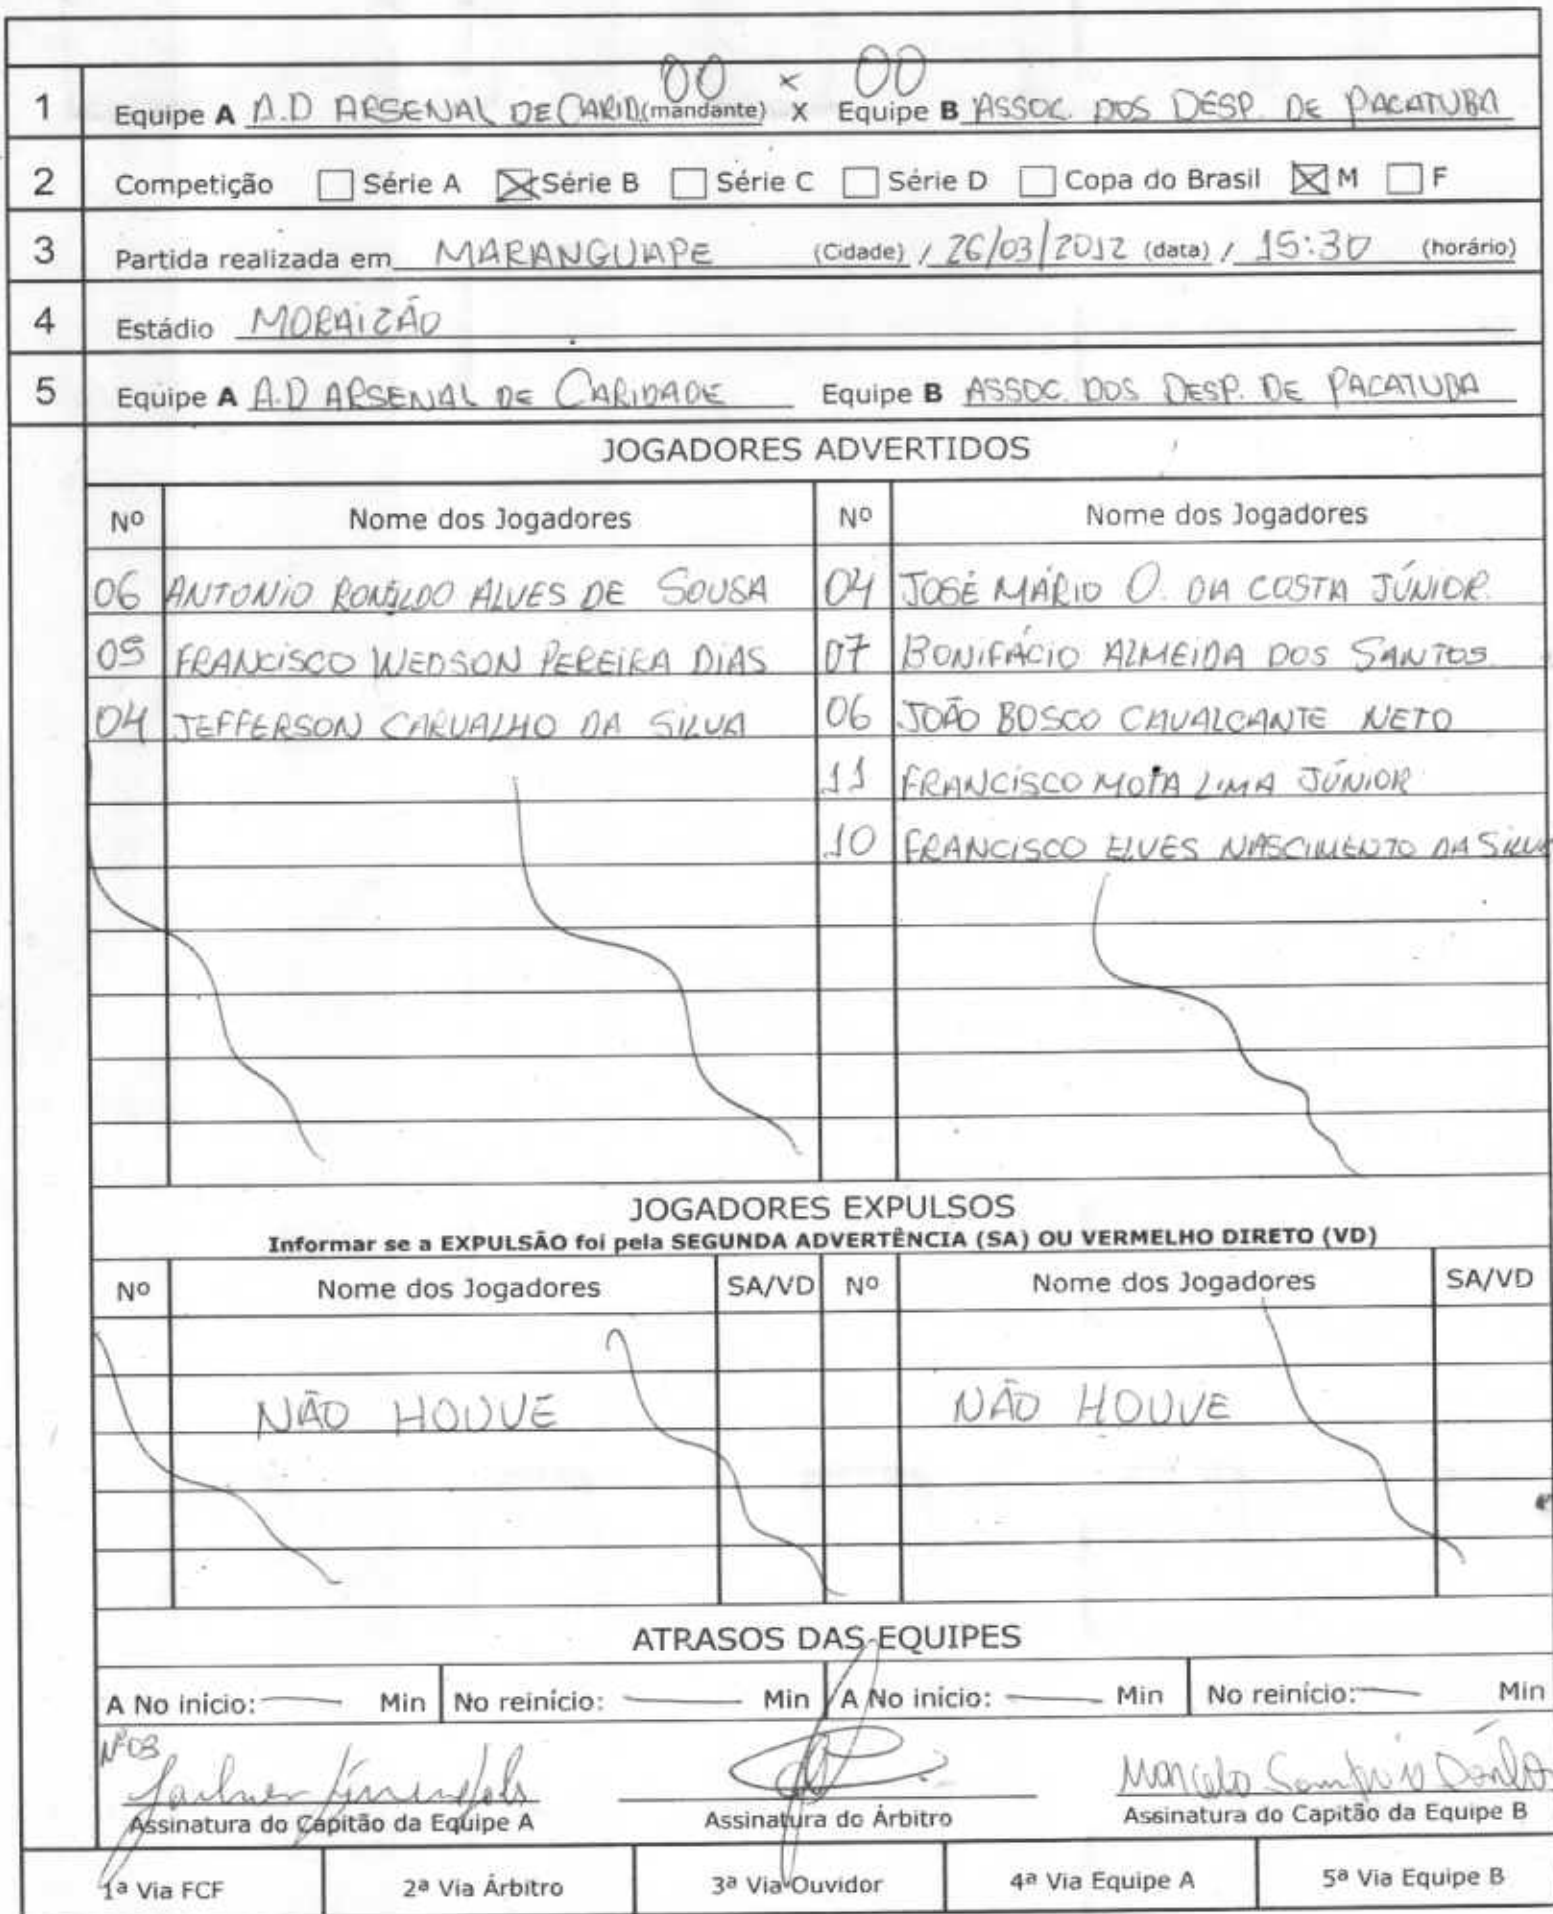 00 x 00
1 Equipe A A.D ARSENAL DE CARID(mandante) X Equipe B ASSOC. DOS DESP. DE PACATUBA
2 Competição Série A Série B Série C Série D Copa do Brasil M F
3 Partida realizada em MARANGUAPE (Cidade) / 26/03/2012 (data) / 15:30 (horário)
4 Estádio MORAIZÃO
5 Equipe A A.D ARSENAL DE CARIDADE Equipe B ASSOC. DOS DESP. DE PACATUBA
JOGADORES ADVERTIDOS
Nº Nome dos Jogadores Nº Nome dos Jogadores
06 ANTONIO RONILDO ALVES DE SOUSA 04 JOSÉ MÁRIO O. DA COSTA JÚNIOR
05 FRANCISCO WEDSON PEREIRA DIAS 07 BONIFÁCIO ALMEIDA DOS SANTOS
04 JEFFERSON CARVALHO DA SILVA 06 JOÃO BOSCO CAVALCANTE NETO
11 FRANCISCO MOTA LIMA JÚNIOR
10 FRANCISCO ELVES NASCIMENTO DA SILVA
JOGADORES EXPULSOS
Informar se a EXPULSÃO foi pela SEGUNDA ADVERTÊNCIA (SA) OU VERMELHO DIRETO (VD)
Nº Nome dos Jogadores SA/VD Nº Nome dos Jogadores SA/VD
NÃO HOUVE NÃO HOUVE
ATRASOS DAS EQUIPES
A No início: Min No reinício: Min A No início: Min No reinício: Min
Nº 03
Marcelo
Assinatura do Capitão da Equipe A Assinatura do Árbitro Assinatura do Capitão da Equipe B
1ª Via FCF 2ª Via Árbitro 3ª Via Ouvidor 4ª Via Equipe A 5ª Via Equipe B